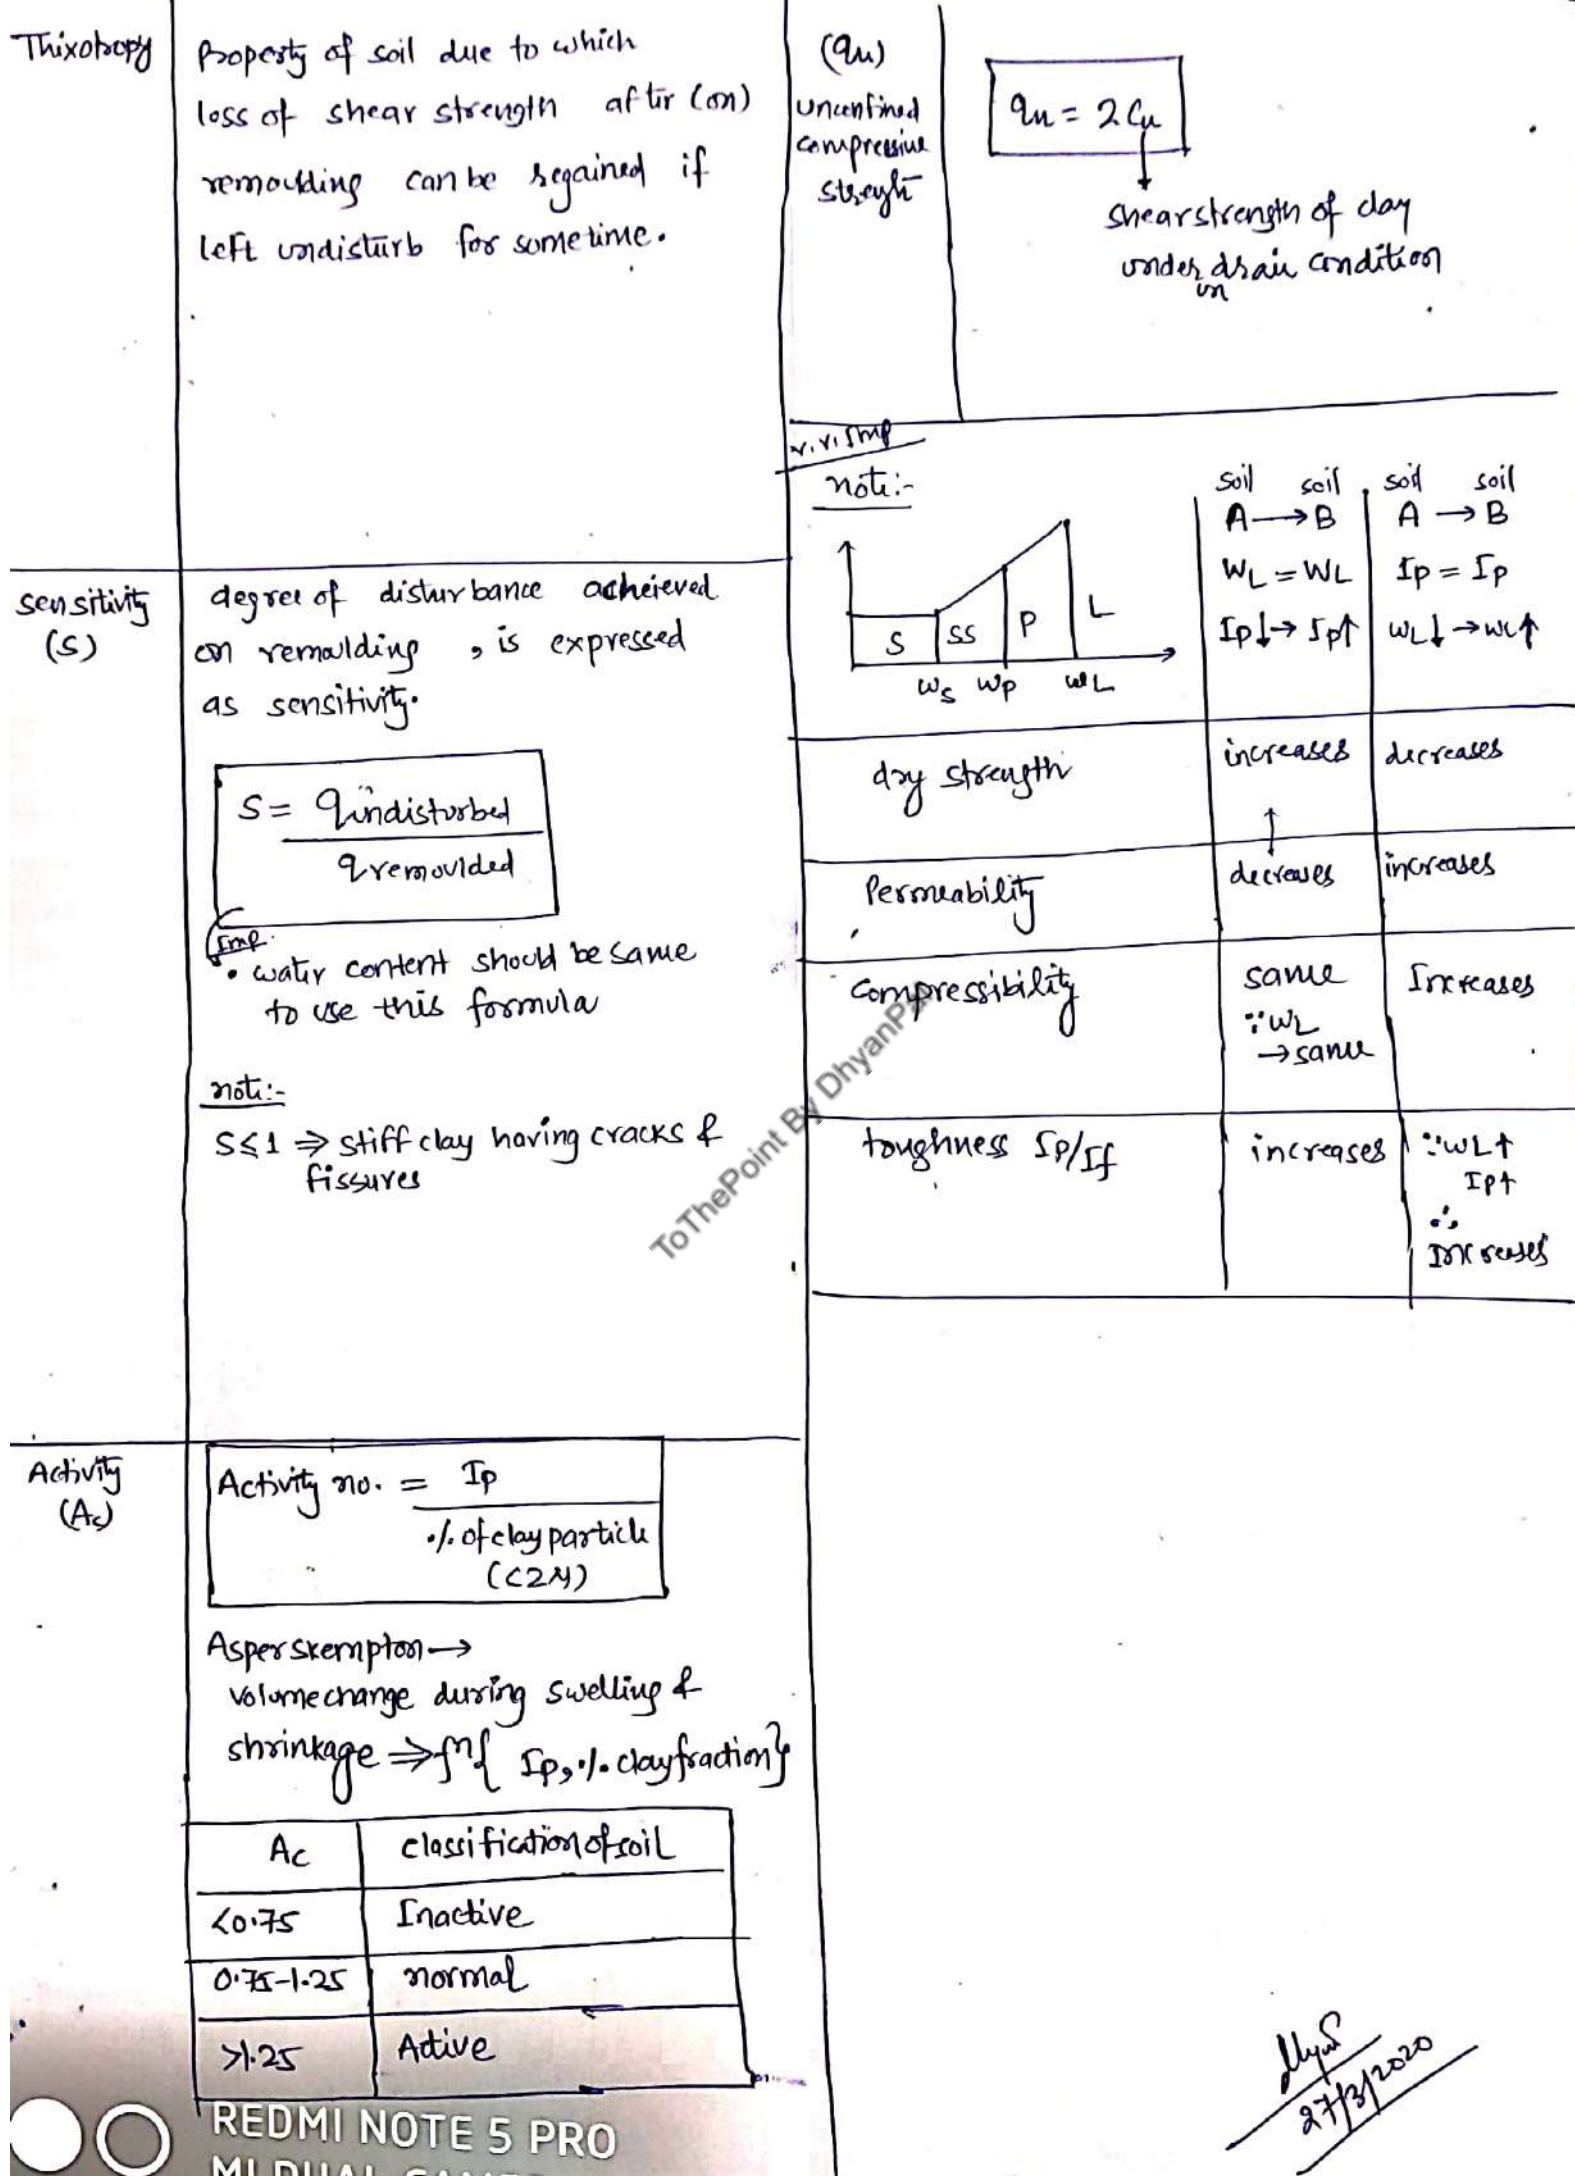 Thixotropy
Property of soil due to which
loss of shear strength after (on)
remoulding can be regained if
left undisturb for sometime.
Sensitivity
(S)
degree of disturbance acheieved
on remoulding , is expressed
as sensitivity.
S = qundisturbed
qremoulded
Imp.
• water content should be same
to use this formula
note:-
S≤1 ⇒ stiff clay having cracks &
fissures
Activity
(Ac)
Activity no. = Ip
% of clay particle
(<2μ)
As per skempton →
volume change during swelling &
shrinkage ⇒ fn{ Ip, % clay fraction}
Ac classification of soil
<0.75 Inactive
0.75-1.25 normal
>1.25 Active
(qu)
unconfined
compressive
strength
qu = 2Cu
shear strength of clay
under drain condition
un
v.v.Imp
note:-
S SS P L
ws wp wL
soil soil
A → B
WL = WL
Ip↓ → Ip↑
soil soil
A → B
Ip = Ip
WL↓ → WL↑
dry strength increases decreases
Permeability decreases increases
compressibility same Increases
∵ WL
→ same
toughness Ip/If increases ∵ WL↑
Ip↑
∴
Increases
ToThePoint By DhyanPa
27/3/2020
REDMI NOTE 5 PRO